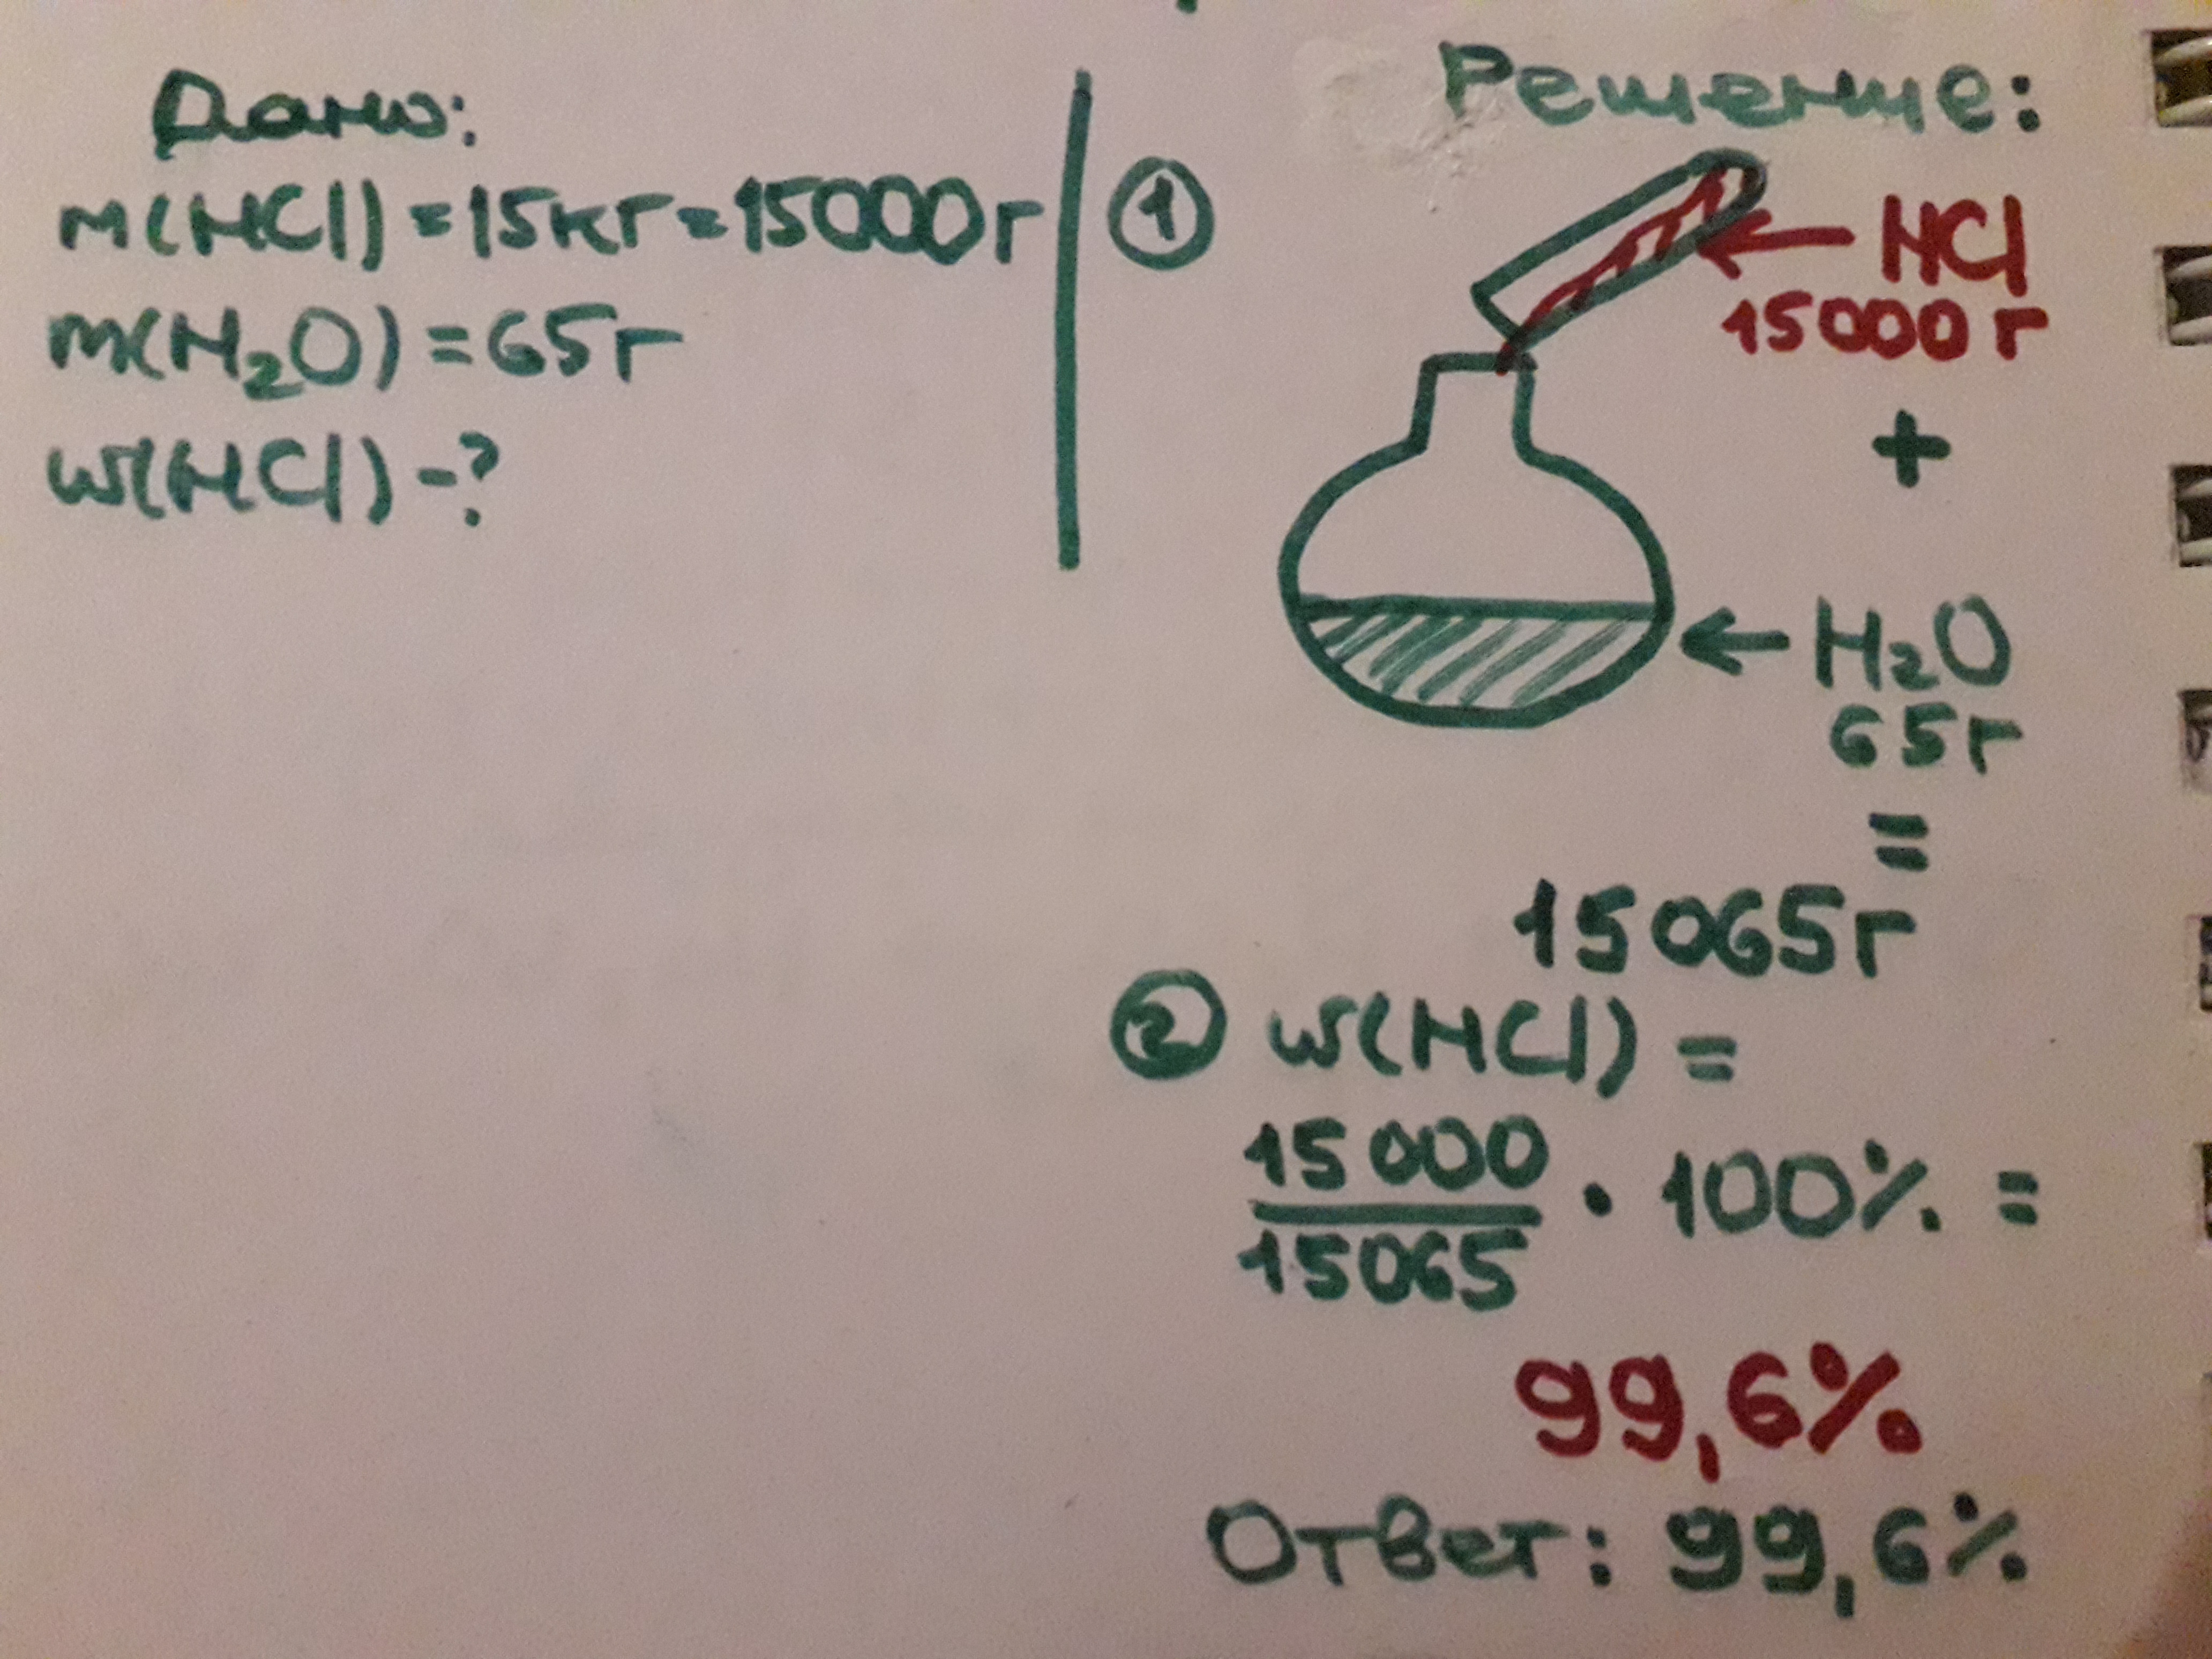 Дано:
m(HCl) = 15кг = 15000г
m(H₂O) = 65г
w(HCl) - ?
Решение:
1
HCl
15000 г
+
H₂O
65г
=
15065г
2 w(HCl) =
15000
15065
· 100% =
99,6%
Ответ: 99,6%